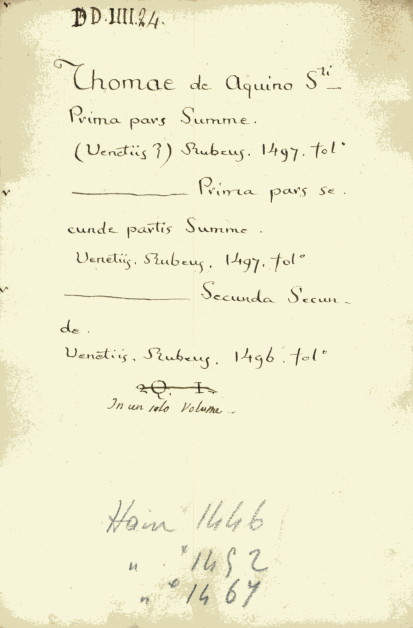 DD.IIII.24.
Thomae de Aquino S^ti
Prima pars Summe.
(Venetiis?) Rubeus. 1497. fol°
Prima pars se-
cunde partis Summe.
Venetiis. Rubeus. 1497. fol°
Secunda Secun-
de.
Venetiis. Rubeus. 1496. fol°
Q. I.
In un solo Volume
Hain 1446
" *1452
" *1467